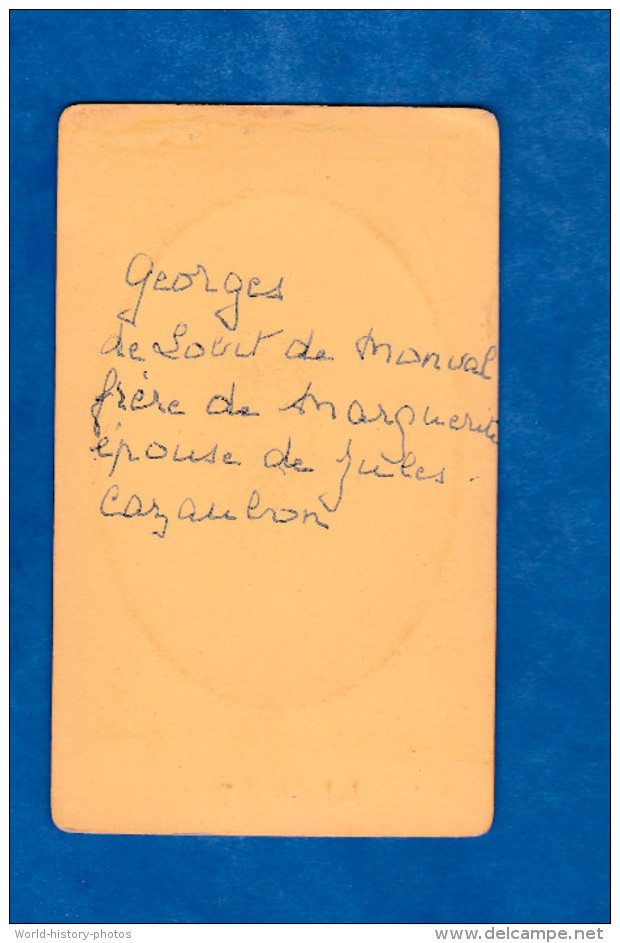 Georges
de Lobit de Monval
frère de Marguerite
épouse de Jules.
Cazaubon
World-history-photos
www.delcampe.net